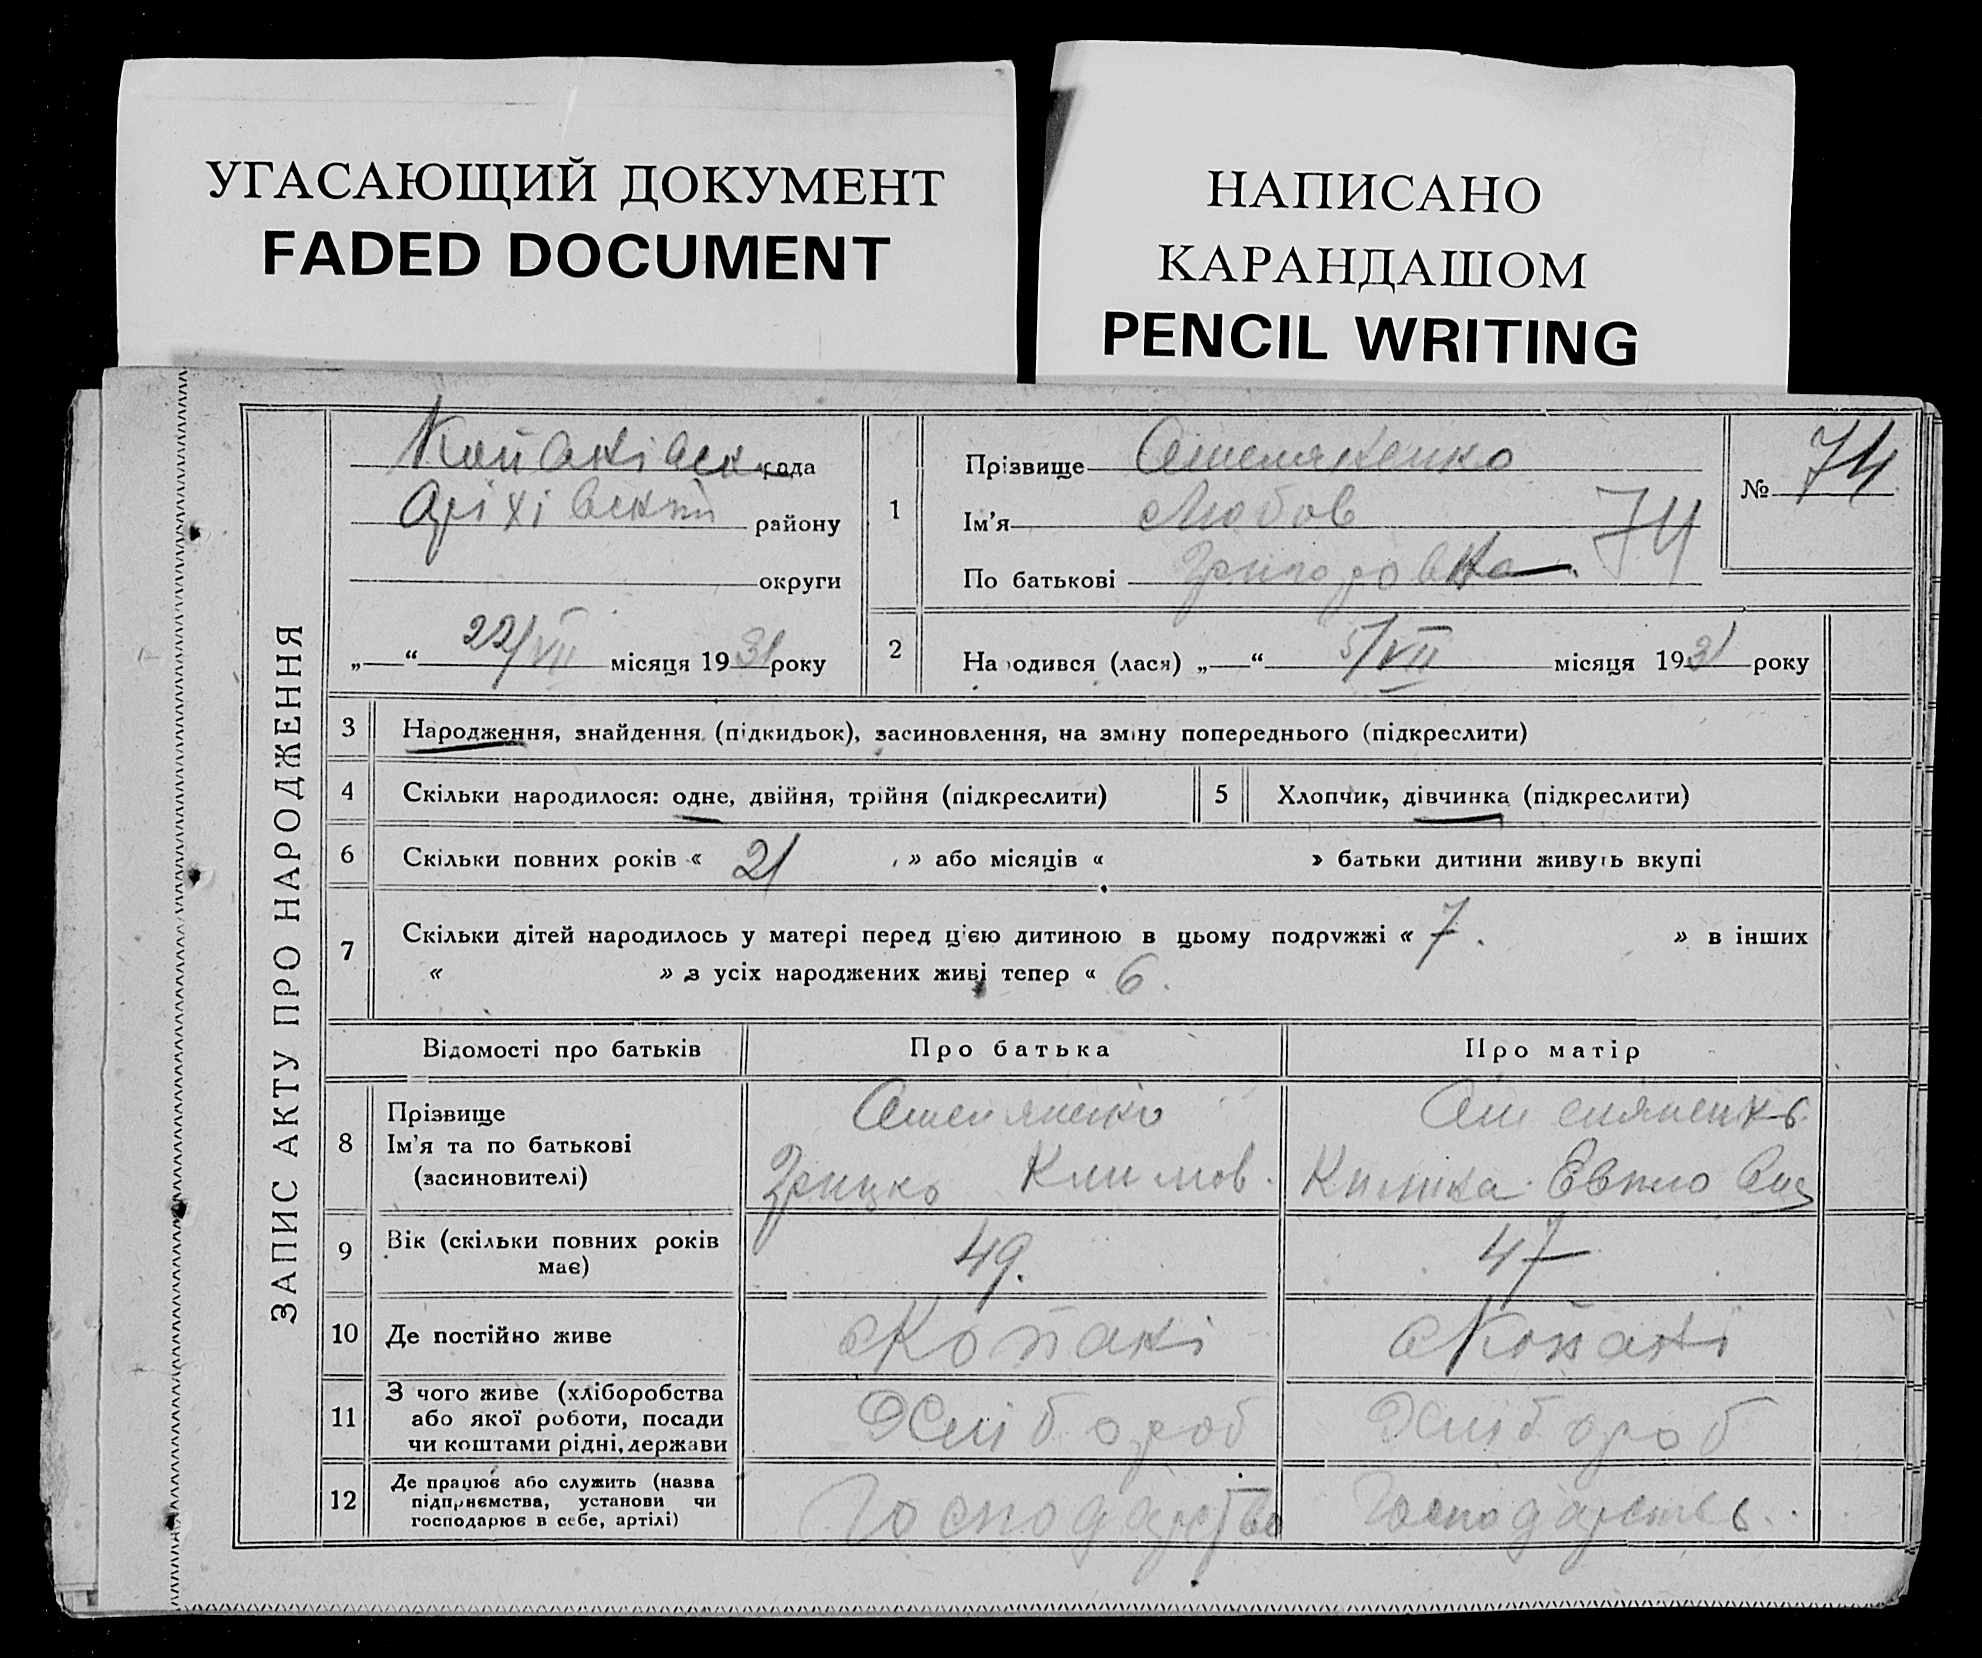 УГАСАЮЩИЙ ДОКУМЕНТ
FADED DOCUMENT
НАПИСАНО
КАРАНДАШОМ
PENCIL WRITING
ЗАПИС АКТУ ПРО НАРОДЖЕННЯ
рада
району
округи
„ “ 22/VII місяця 1931 року
1
Прізвище Омеляненко
Ім'я Любов
По батькові Григоровна
74
№ 74
2
Народився (лася) „ “ 5/VII місяця 1931 року
3 Народження, знайдення (підкидьок), засиновлення, на зміну попереднього (підкреслити)
4 Скільки народилося: одне, двійня, трійня (підкреслити)
5 Хлопчик, дівчинка (підкреслити)
6 Скільки повних років « 21 » або місяців « » батьки дитини живуть вкупі
7 Скільки дітей народилось у матері перед цією дитиною в цьому подружжі « 7. » в інших
« » з усіх народжених живі тепер « 6.
Відомості про батьків Про батька Про матір
8 Прізвище
Ім'я та по батькові
(засиновителі)
Омеляненко
Грицко Климов.
Омеляненко
9 Вік (скільки повних років
має)
49. 47
10 Де постійно живе
с Копані с Копані
11 З чого живе (хліборобства
або якої роботи, посади
чи коштами рідні, держави
Хлібороб Хлібороб
12 Де працює або служить (назва
підприємства, установи чи
господарює в себе, артілі)
Господарство Господарство